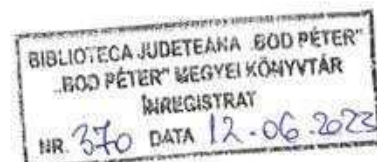 BIBLIOTECA JUDEȚEANA „BOD PÉTER”
„BOD PÉTER” MEGYEI KÖNYVTÁR
ÎNREGISTRAT
NR. 370 DATA 12.06.2023